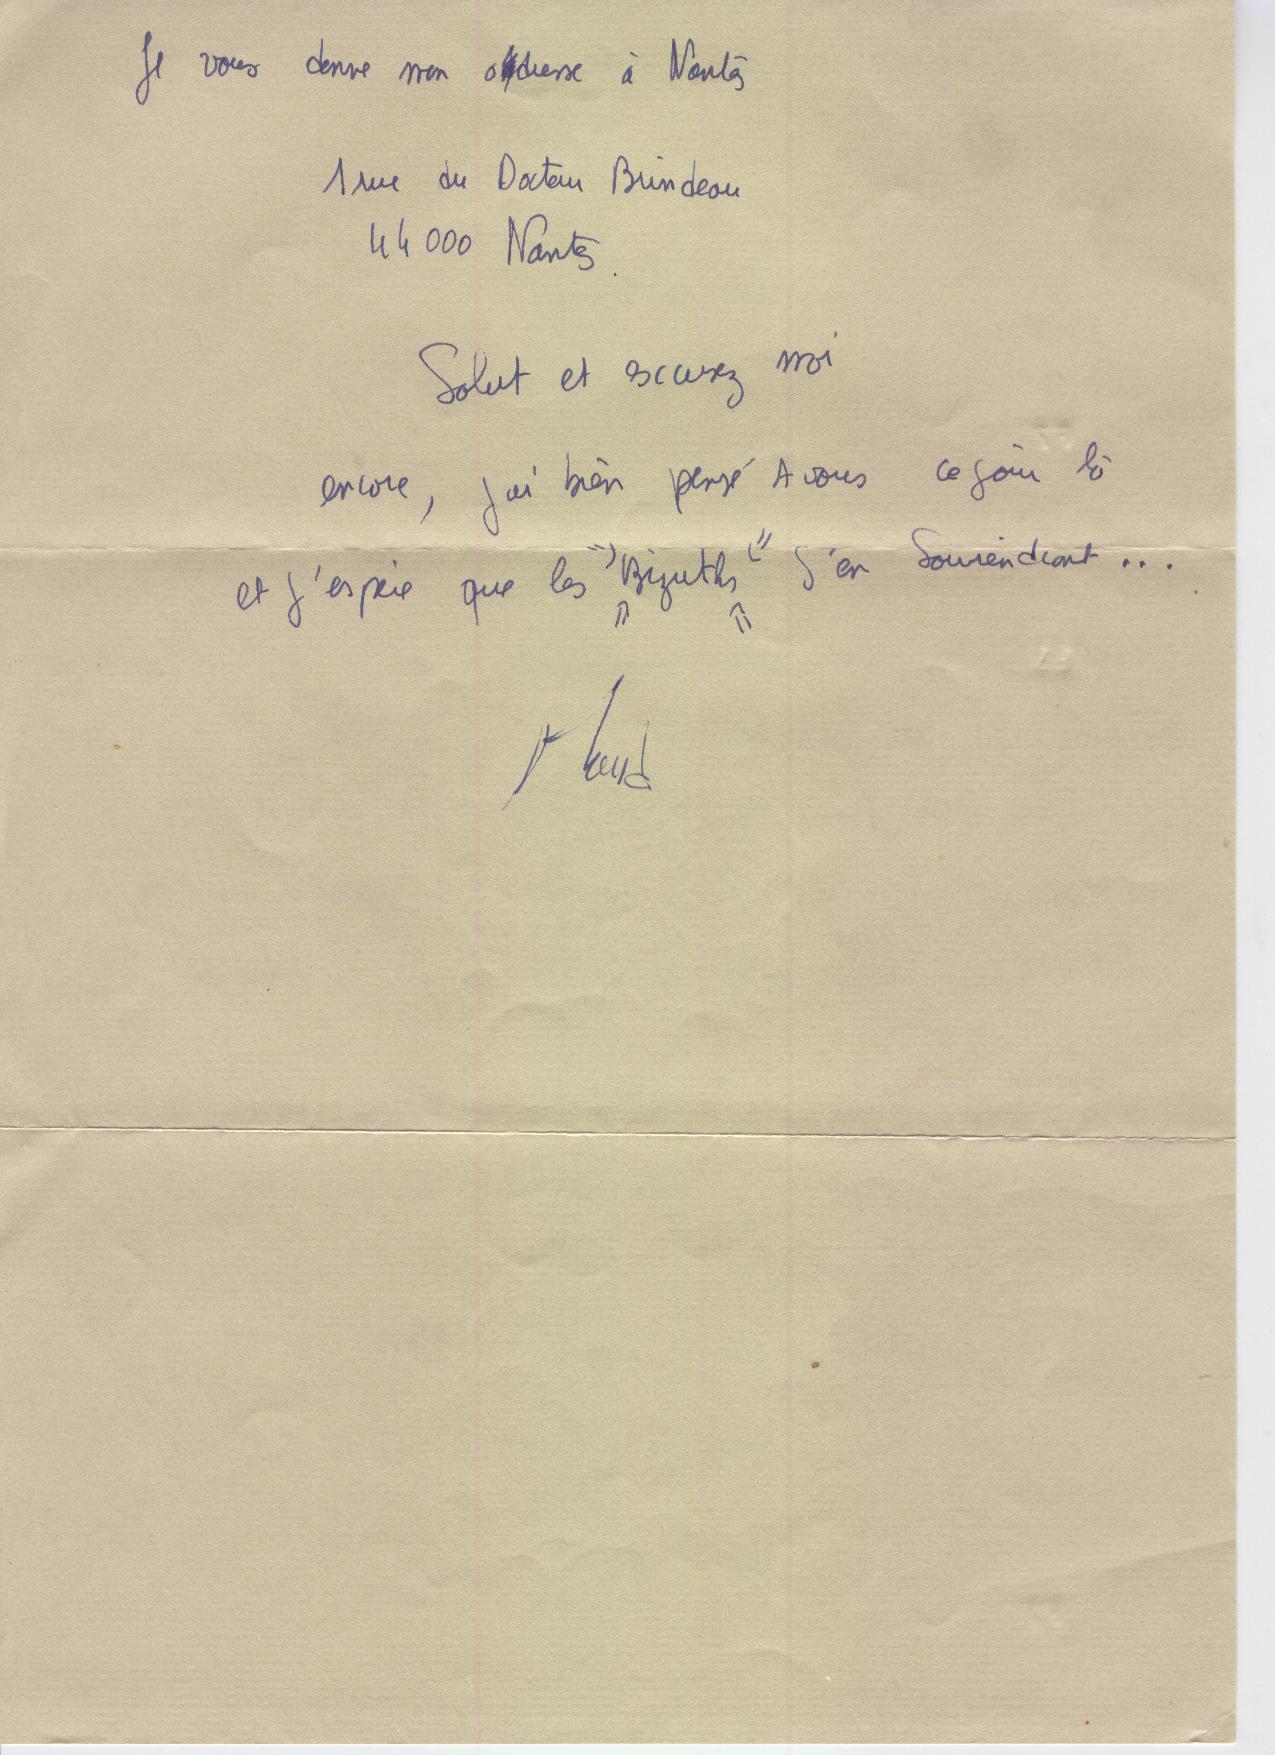 Je vous donne mon adresse à Nantes
1 rue du Docteur Brindeau
44 000 Nantes.
Salut et escusez moi
encore, j'ai bien pensé A vous ce jour là
et j'espère que les "Bizuths" s'en souviendront...